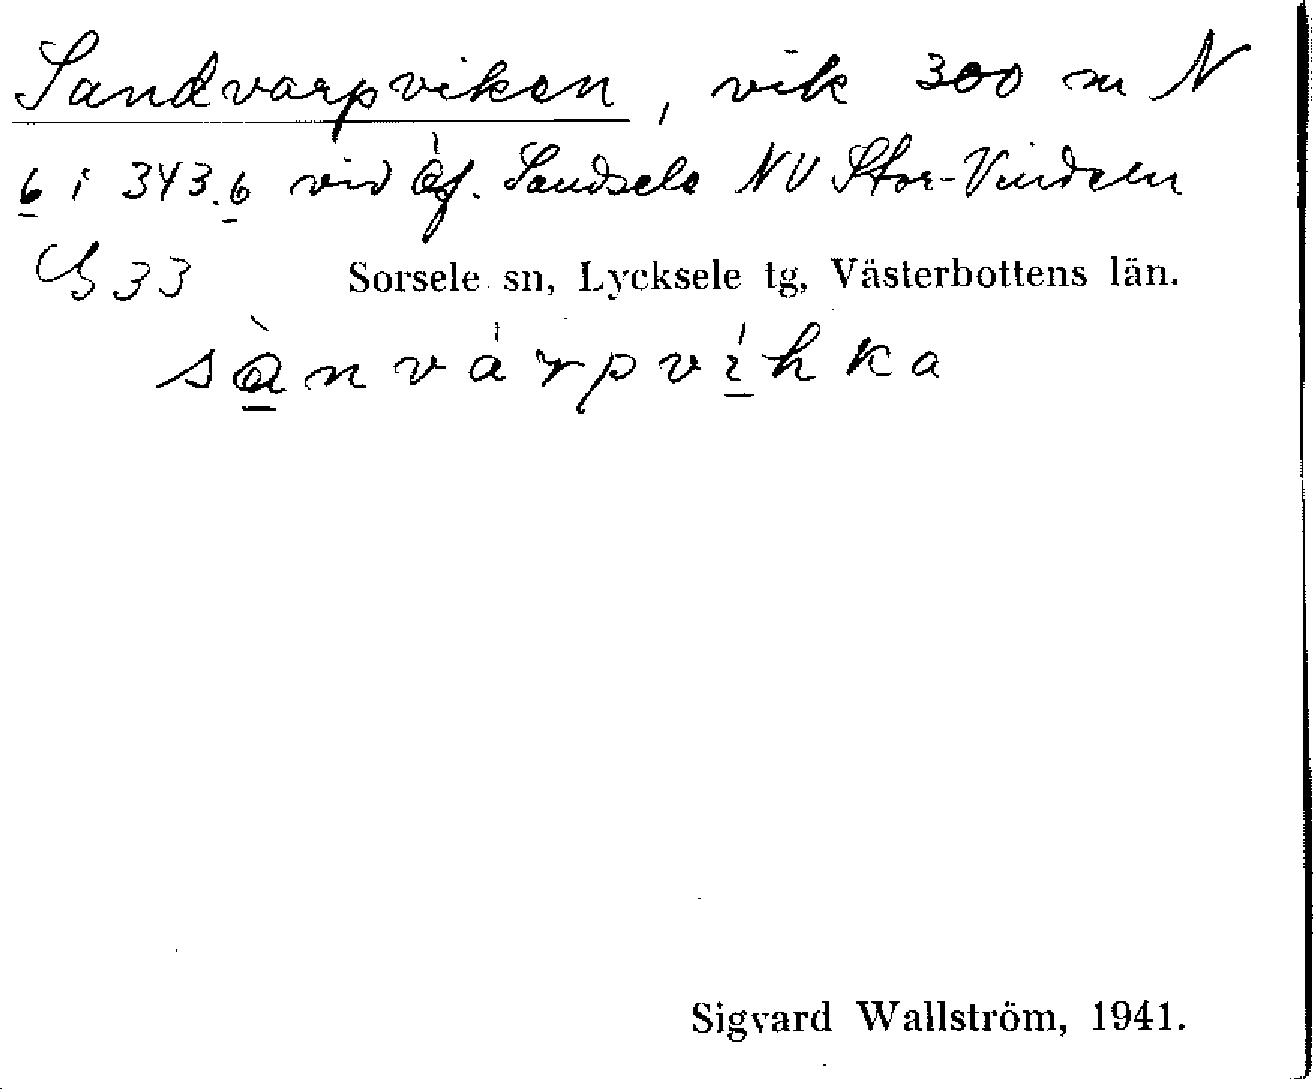 Sandvarpviken, vik 300 m N
6 i 343.6 vid åf. Sandsele NV Stor-Vindeln
33
Sorsele sn, Lycksele tg, Västerbottens län.
sànvárpvíhka
Sigvard Wallström, 1941.